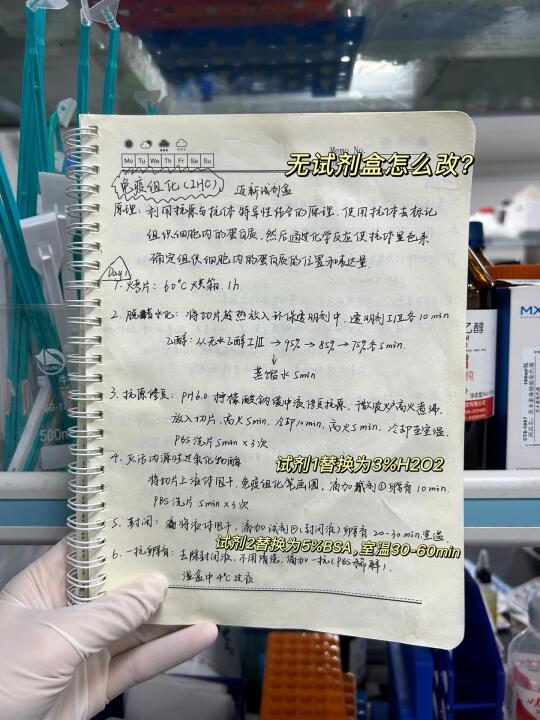 Mo Tu We Th Fr Sa Su
Memo No.
无试剂盒怎么改?
免疫组化(IHC) 迈新试剂盒
原理:利用抗原与抗体特异性结合的原理,使用抗体去标记
组织细胞内的蛋白质,然后通过化学反应使抗体显色来
确定组织细胞内的蛋白质的位置和表达量.
Day1
1. 烤片:60°C烘箱 1h.
2. 脱蜡水化:将切片趁热放入环保透明剂中,透明剂I/II各10min
乙醇:从无水乙醇I/II→95%→85%→75%各5min.
↓
蒸馏水5min
3. 抗原修复:pH6.0 柠檬酸钠缓冲液修复抗原、微波炉高火煮沸,
放入切片,高火5min,冷却10min,高火5min,冷却至室温,
PBS洗片5min×3次
4. 灭活内源性过氧化物酶
试剂1替换为3%H2O2
将切片上液体甩干,免疫组化笔画圈,滴加试剂①孵育10min.
PBS洗片5min×3次
5. 封闭:将液体甩干,滴加试剂②(封闭液)孵育20-30min室温
试剂2替换为5%BSA,室温30-60min
6. 一抗孵育:去除封闭液,不用清洗,滴加一抗(PBS稀释).
湿盒中4°C过夜
500m
乙醇
MX